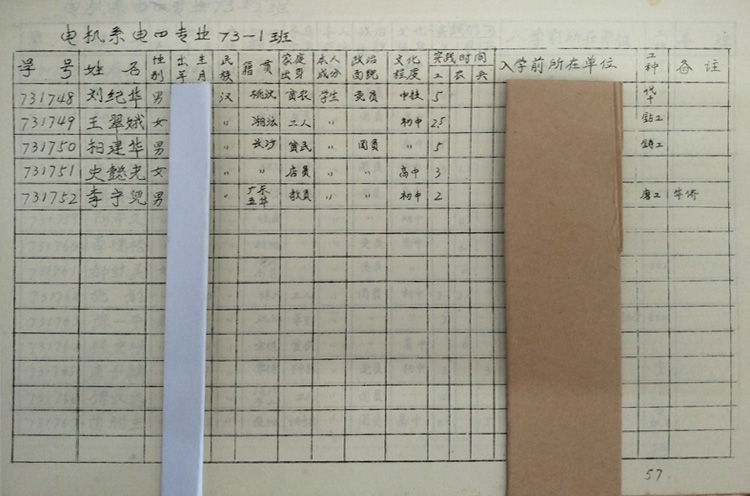 电机系电四专业73-1班
学号 姓名 性别 出生年月 民族 籍贯 家庭出身 本人成分 政治面貌 文化程度 实践时间 工 农 兵 入学前所在单位 工种 备注
731748 刘纪华 男 汉 武汉 贫农 学生 党员 中技 5
731749 王翠娥 女 〃 湘潭 工人 〃 〃 初中 2.5 钻工
731750 柏建华 男 〃 长沙 贫民 〃 团员 〃 5 铸工
731751 史懿光 女 〃 〃 店员 〃 〃 高中 3
731752 李宁 男 〃 广东五华 教员 〃 〃 初中 2 磨工
57